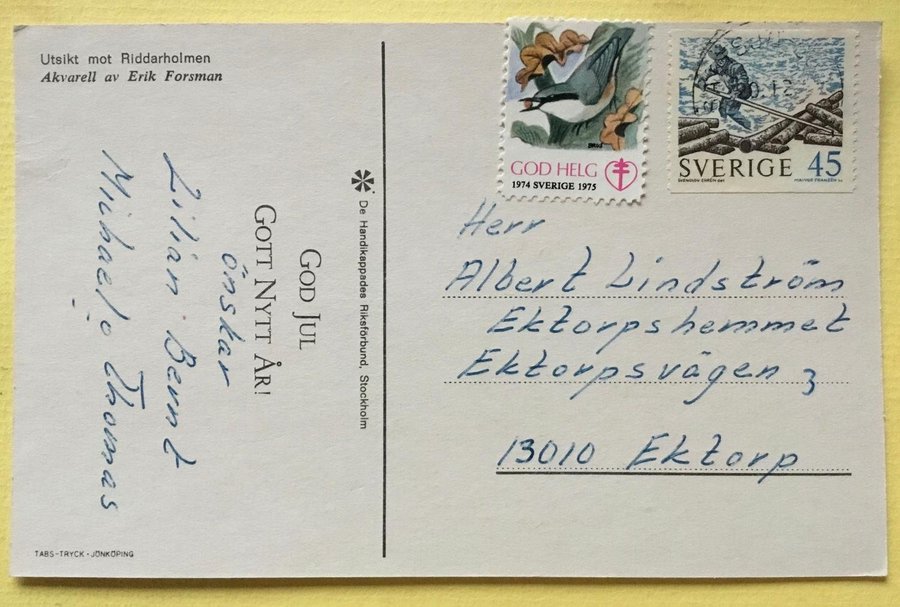 Utsikt mot Riddarholmen
Akvarell av Erik Forsman
De Handikappades Riksförbund, Stockholm
GOD JUL
GOTT NYTT ÅR!
önskar
Lilian Bernt
Michaela Thomas
TABS-TRYCK • JÖNKÖPING
GOD HELG
1974 SVERIGE 1975
SVERIGE 45
Herr
Albert Lindström
Ektorpshemmet
Ektorpsvägen 3
13010 Ektorp